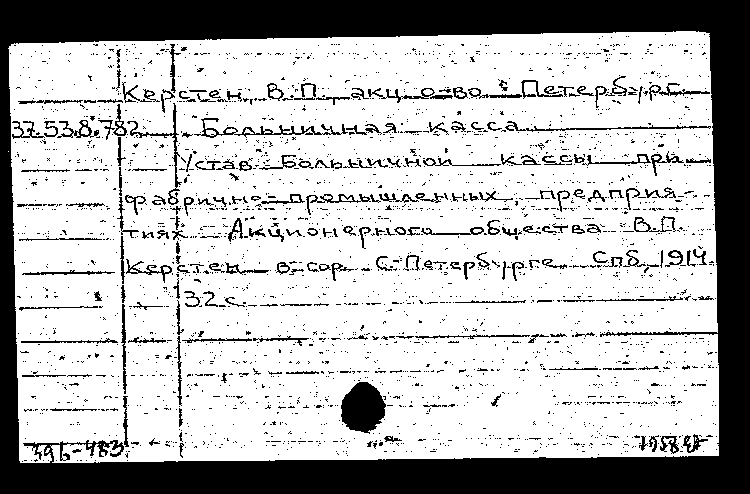 Керстен, В.П., акц. о-во. Петербург.
37.53.8.782 Больничная касса.
Устав больничной кассы при
фабрично-промышленных предприя-
тиях Акционерного общества В.П.
Керстен в гор. С-Петербурге. Спб, 1914.
32 с.
396-483